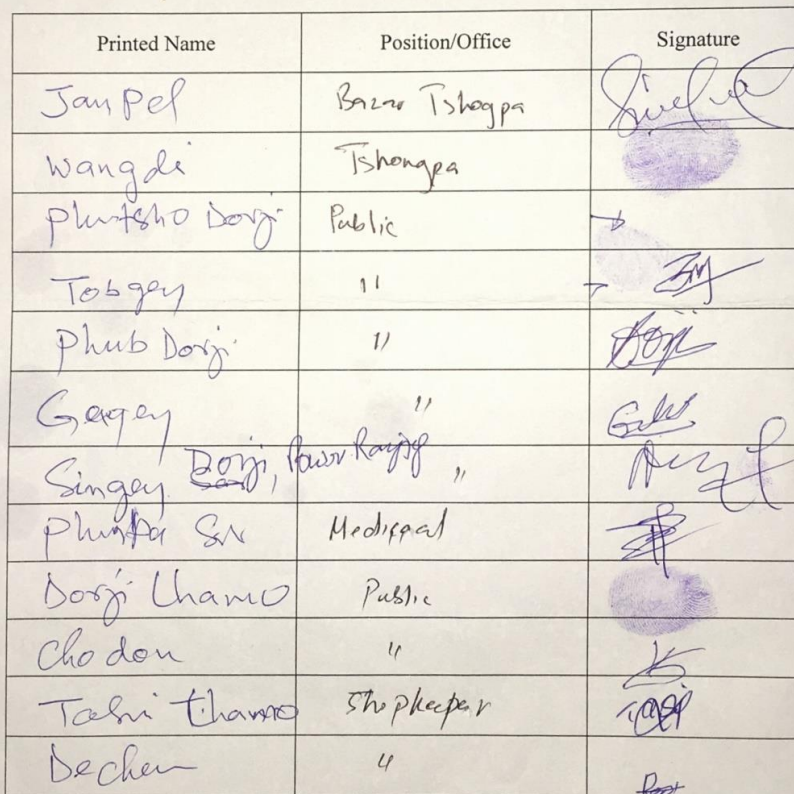 Printed Name Position/Office Signature
Janpel Bazar Tshogpa
Wangdi Tshongpa
Phuntsho Dorji Public
Tobgey "
Phub Dorji " Dorji
Gagey "
Singey Dorji, Power Ranjog "
Phurpa Medippal
Dorji Lhamo Public
Chodon "
Tashi Lhamo Shopkeeper
Dechen "